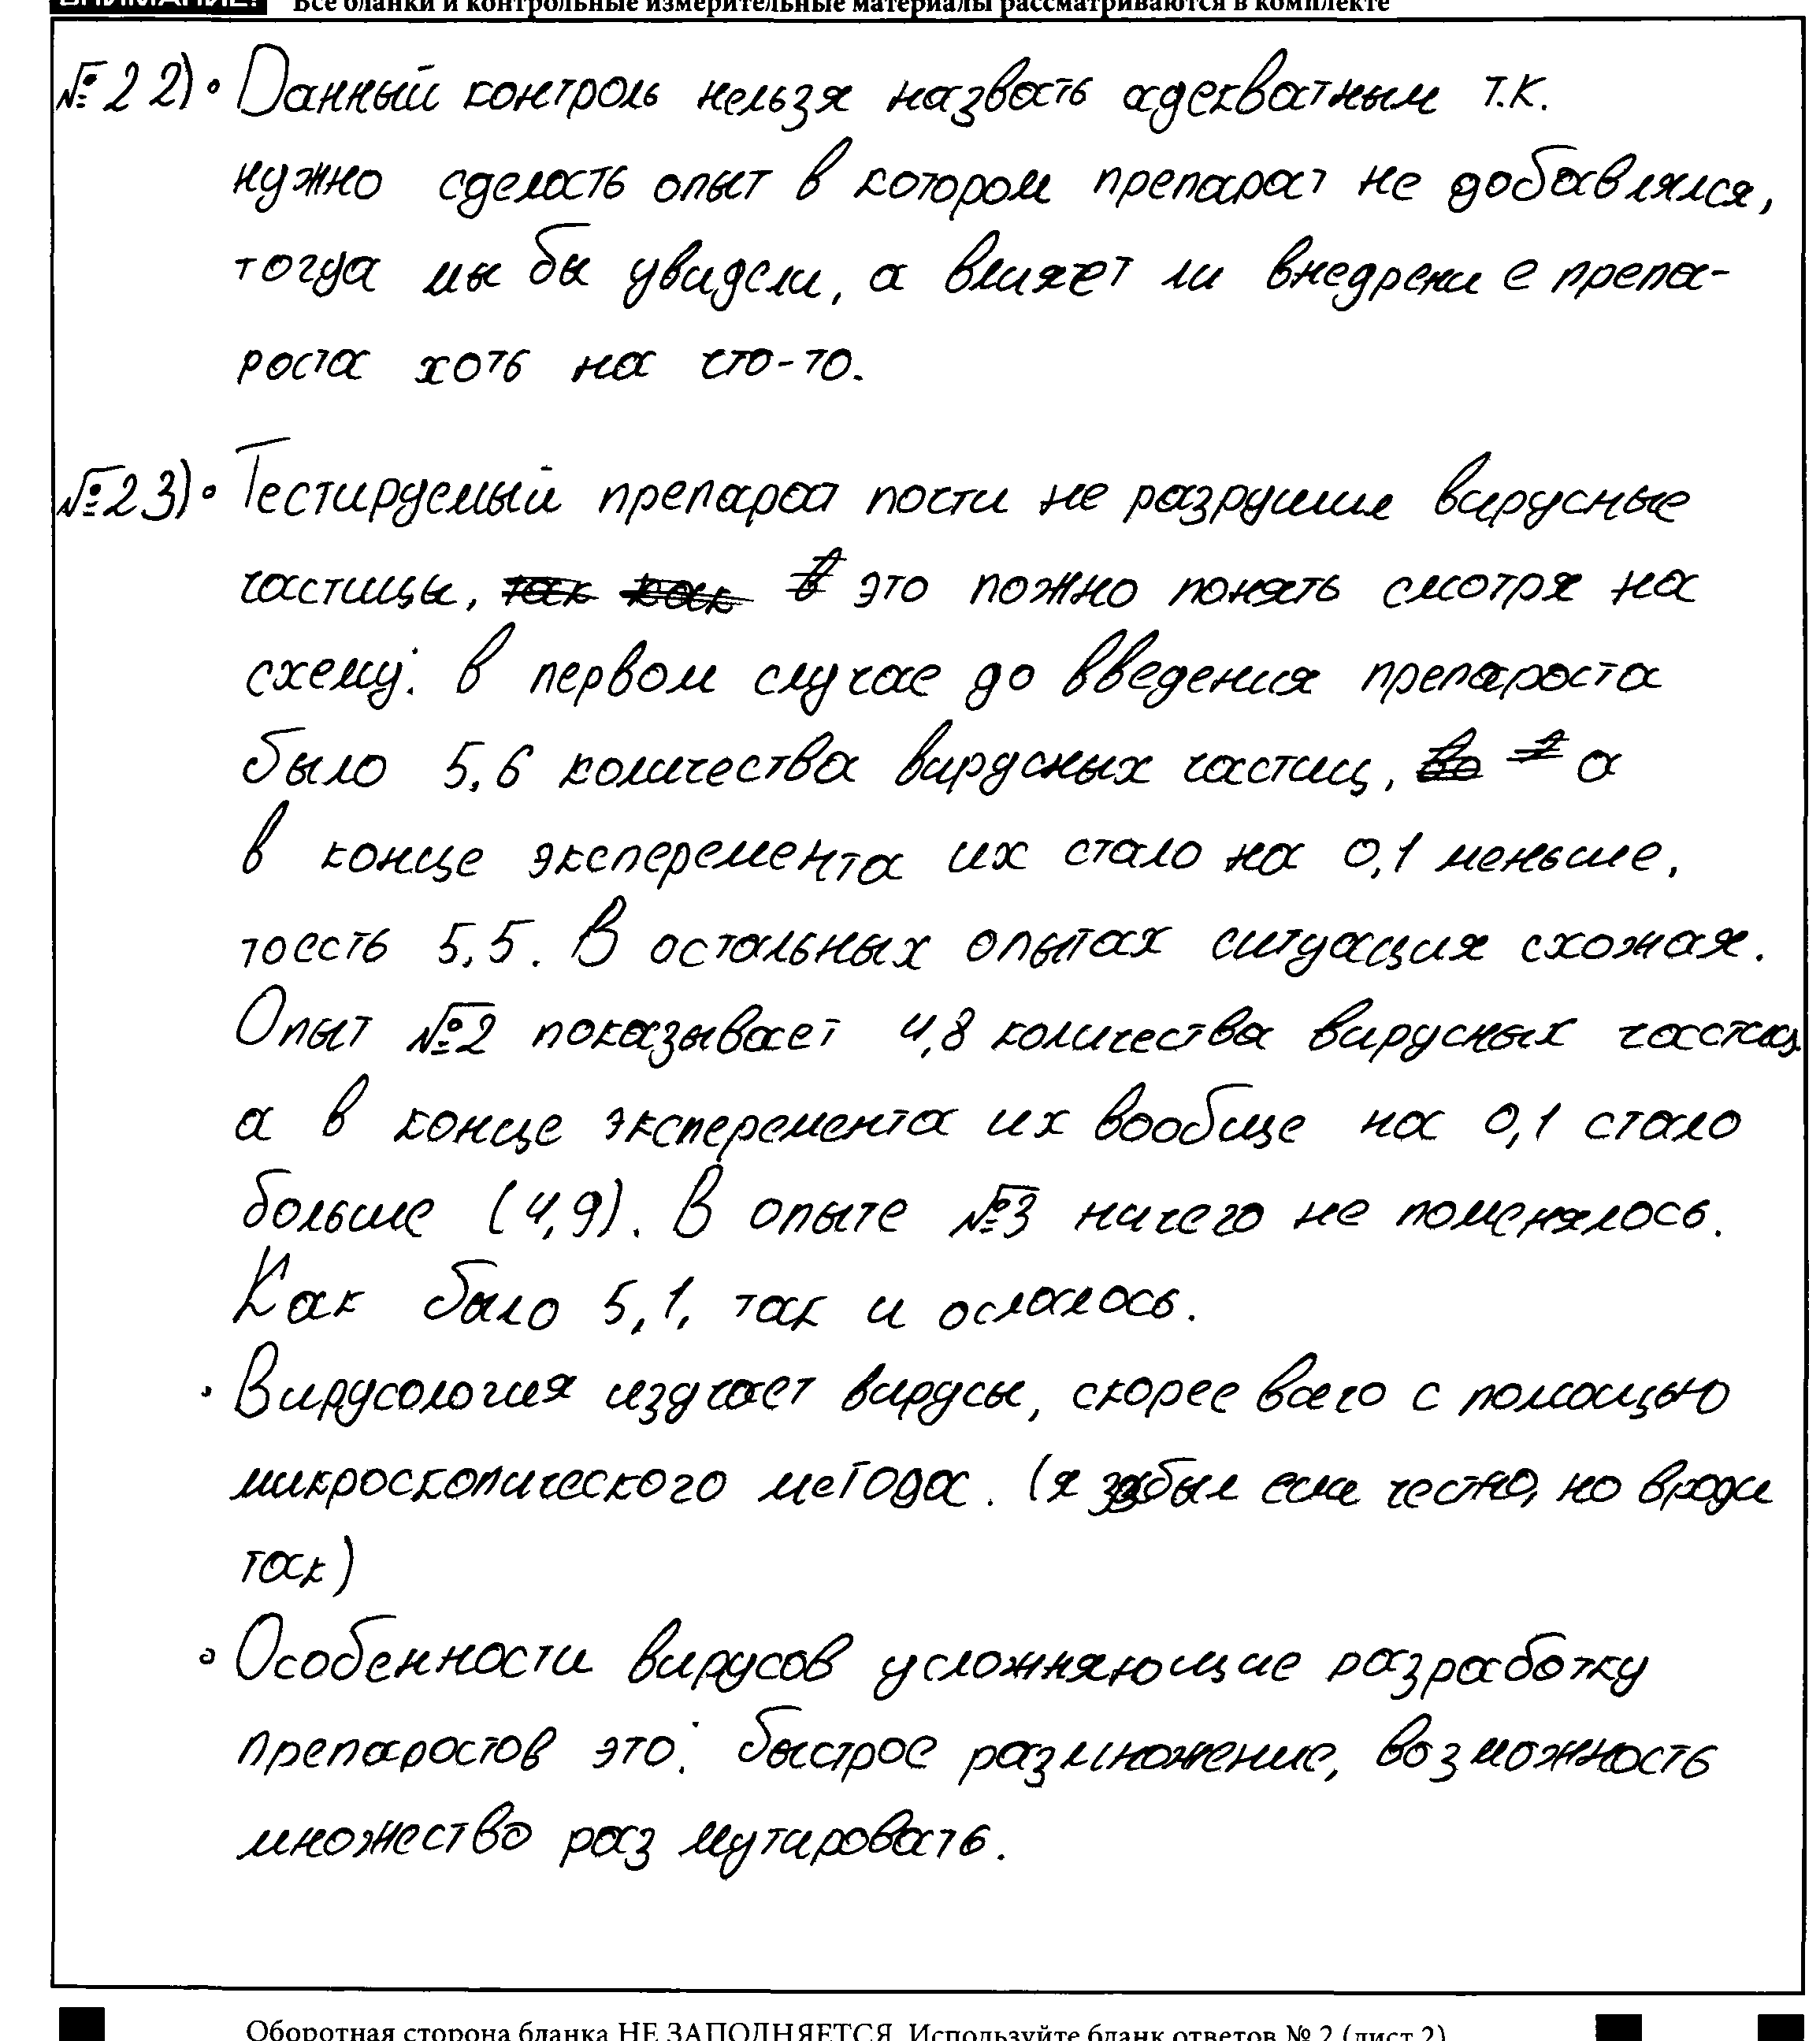 ВНИМАНИЕ! Все бланки и контрольные измерительные материалы рассматриваются в комплекте
№22) • Данный контроль нельзя назвать адекватным т.к.
нужно сделать опыт в котором препарат не добавлялся,
тогда мы бы увидели, а влияет ли внедрение препа-
рата хоть на что-то.
№23) • Тестируемый препарат пости не разрушил вирусные
частицы, так как в это пожно понять смотря на
схему: в первом случае до введения препарата
было 5,6 количества вирусных частиц, во а
в конце эксперемента их стало на 0,1 меньше,
тоесть 5,5. В остальных опытах ситуация схожая.
Опыт №2 показывает 4,8 количества вирусных частиц
а в конце эксперемента их вообще на 0,1 стало
больше (4,9). В опыте №3 ничего не поменялось.
Как было 5,1, так и осталось.
• Вирусология изучает вирусы, скорее всего с помощью
микроскопического метода. (я забыл если честно, но вроди
так)
• Особенности вирусов усложняющие разработку
препаратов это: быстрое размножение, возможность
множество раз мутировать.
Оборотная сторона бланка НЕ ЗАПОЛНЯЕТСЯ. Используйте бланк ответов № 2 (лист 2)